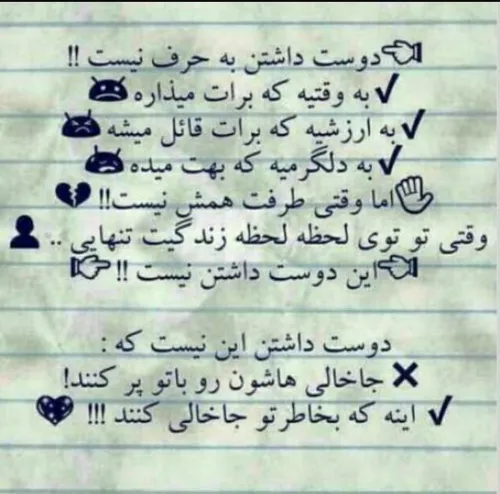 دوست داشتن به حرف نیست !!
✔به وقتیه که برات میذاره
✔به ارزشیه که برات قائل میشه
✔به دلگرمیه که بهت میده
اما وقتی طرفت همش نیست!! 💔
وقتی تو توی لحظه لحظه زندگیت تنهایی .. 👤
این دوست داشتن نیست !!
دوست داشتن این نیست که :
❌ جاخالی هاشون رو باتو پر کنند!
✔ اینه که بخاطرتو جاخالی کنند !!!